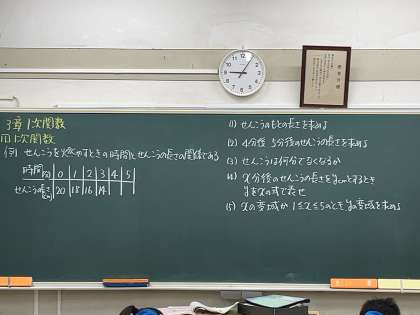 3章 1次関数
1 1次関数
(例) せんこうを燃やすときの時間とせんこうの長さの関係である
時間(分) 0 1 2 3 4 5
せんこうの長さ(cm) 20 18 16 14
(1) せんこうのもとの長さを求める
(2) 4分後 5分後のせんこうの長さを求める
(3) せんこうは何分でなくなるか
(4) x分後のせんこうの長さをycmとするとき
yをxの式で表せ
(5) xの変域が 1≦x≦5のとき yの変域を求める